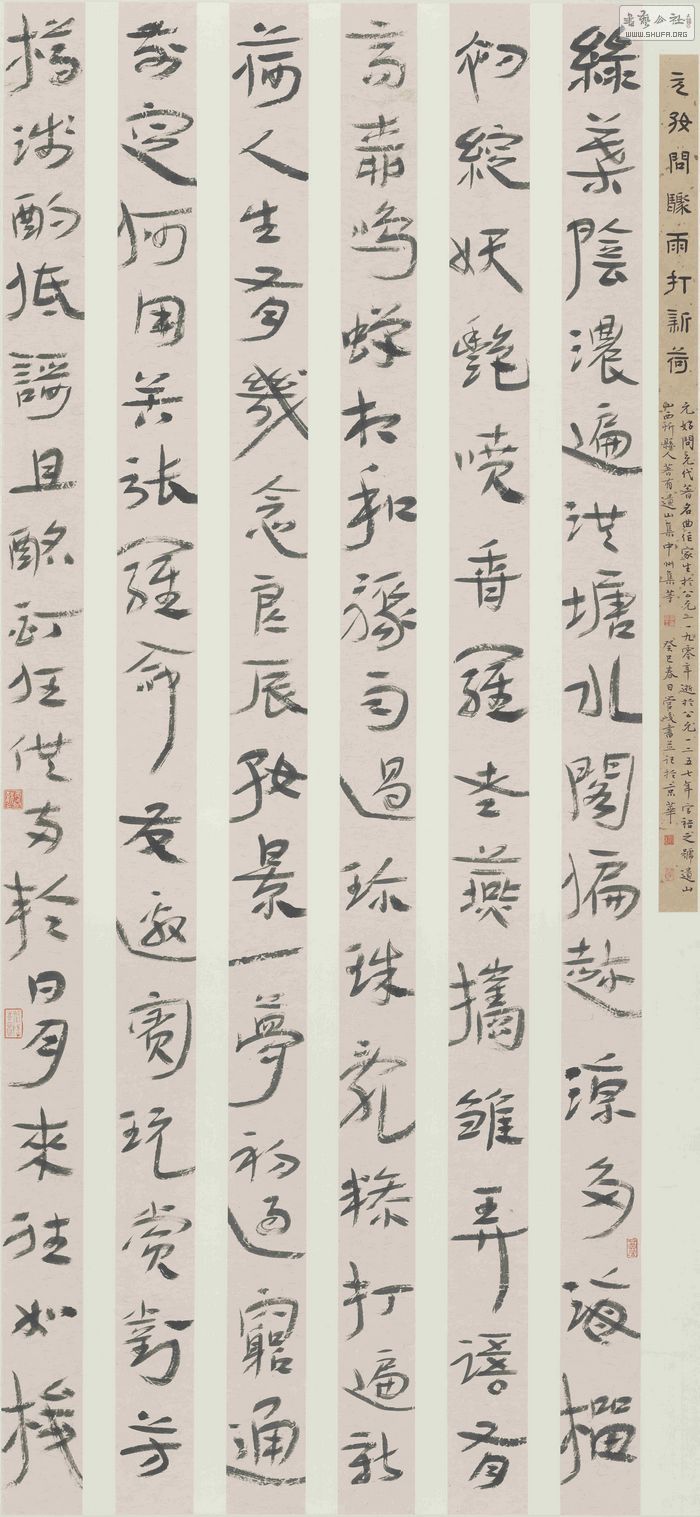 書藝公社
WWW.SHUFA.ORG
元好問驟雨打新荷
元好問元代著名曲作家生於公元一一九零年逝於公元一二五七年字裕之號遺山
山西忻縣人著有遺山集中州集等 癸巳春日管峻書並記於京華
綠葉陰濃遍池塘水閣偏趁涼多海榴
初綻妖艷噴香羅老燕攜雛弄語有
高柳鳴蟬相和驟雨過珍珠亂糝打遍新
荷人生有幾念良辰好景一夢初過窮通
前定何用苦張羅命友邀賓玩賞對芳
樽淺酌低歌且酩酊任他兩輪日月來往如梭